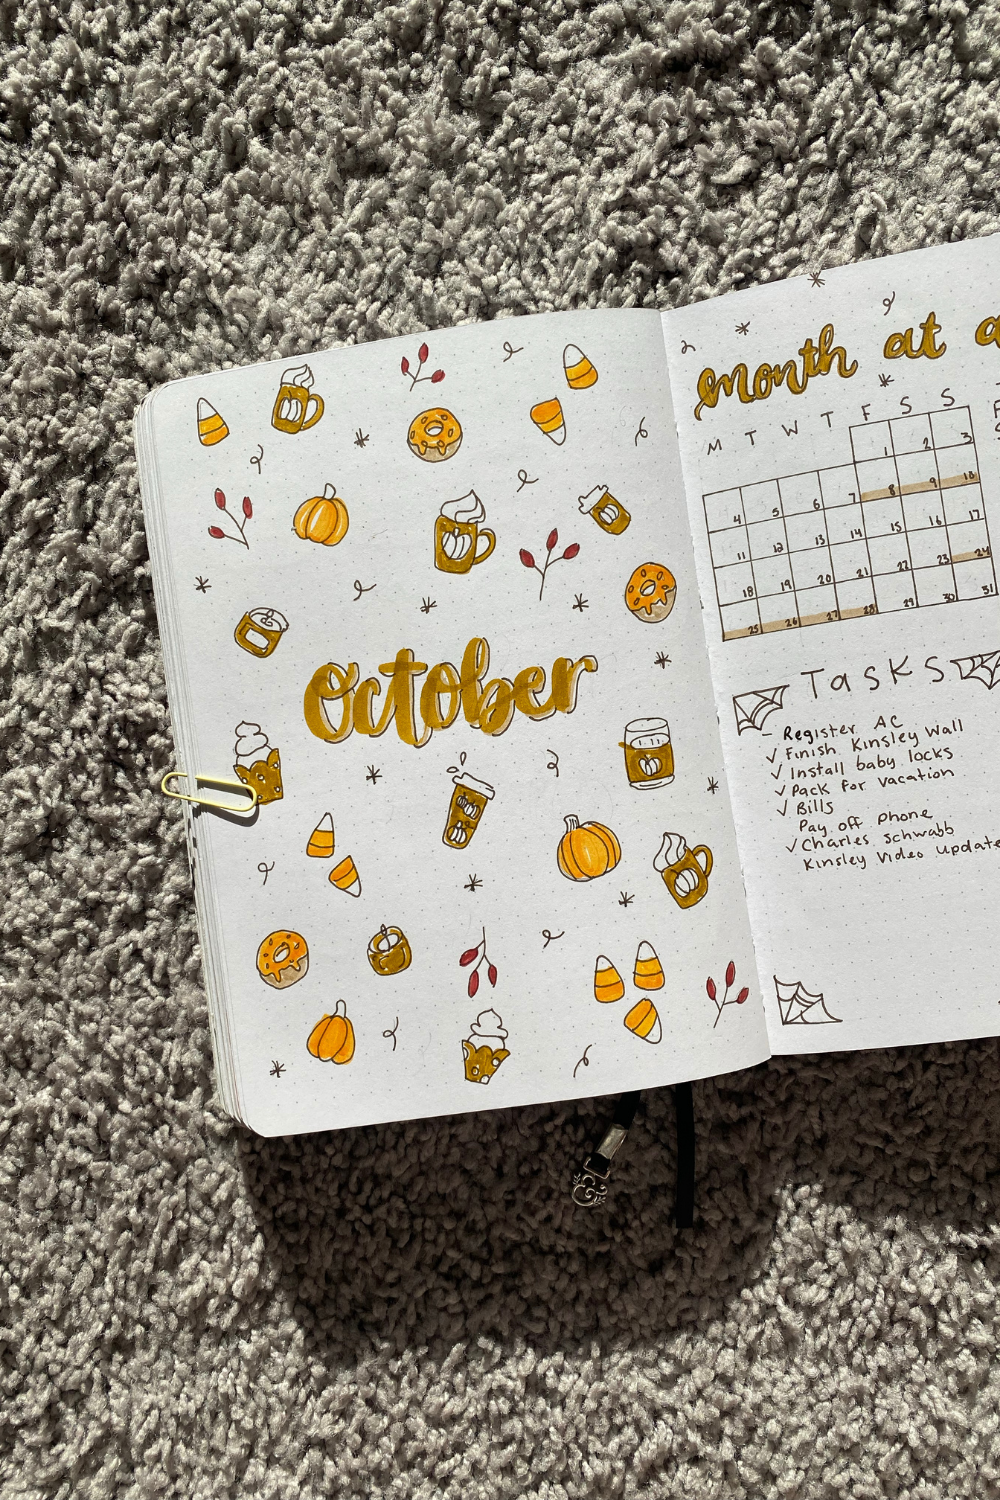 October
month at a
M T W T F S S
1 2 3
4 5 6 7 8 9 10
11 12 13 14 15 16 17
18 19 20 21 22 23 24
25 26 27 28 29 30 31
Tasks
- Register AC
✓ Finish Kinsley Wall
✓ Install baby locks
✓ Pack for vacation
✓ Bills
Pay off phone
✓ Charles Schwabb
Kinsley Video Update